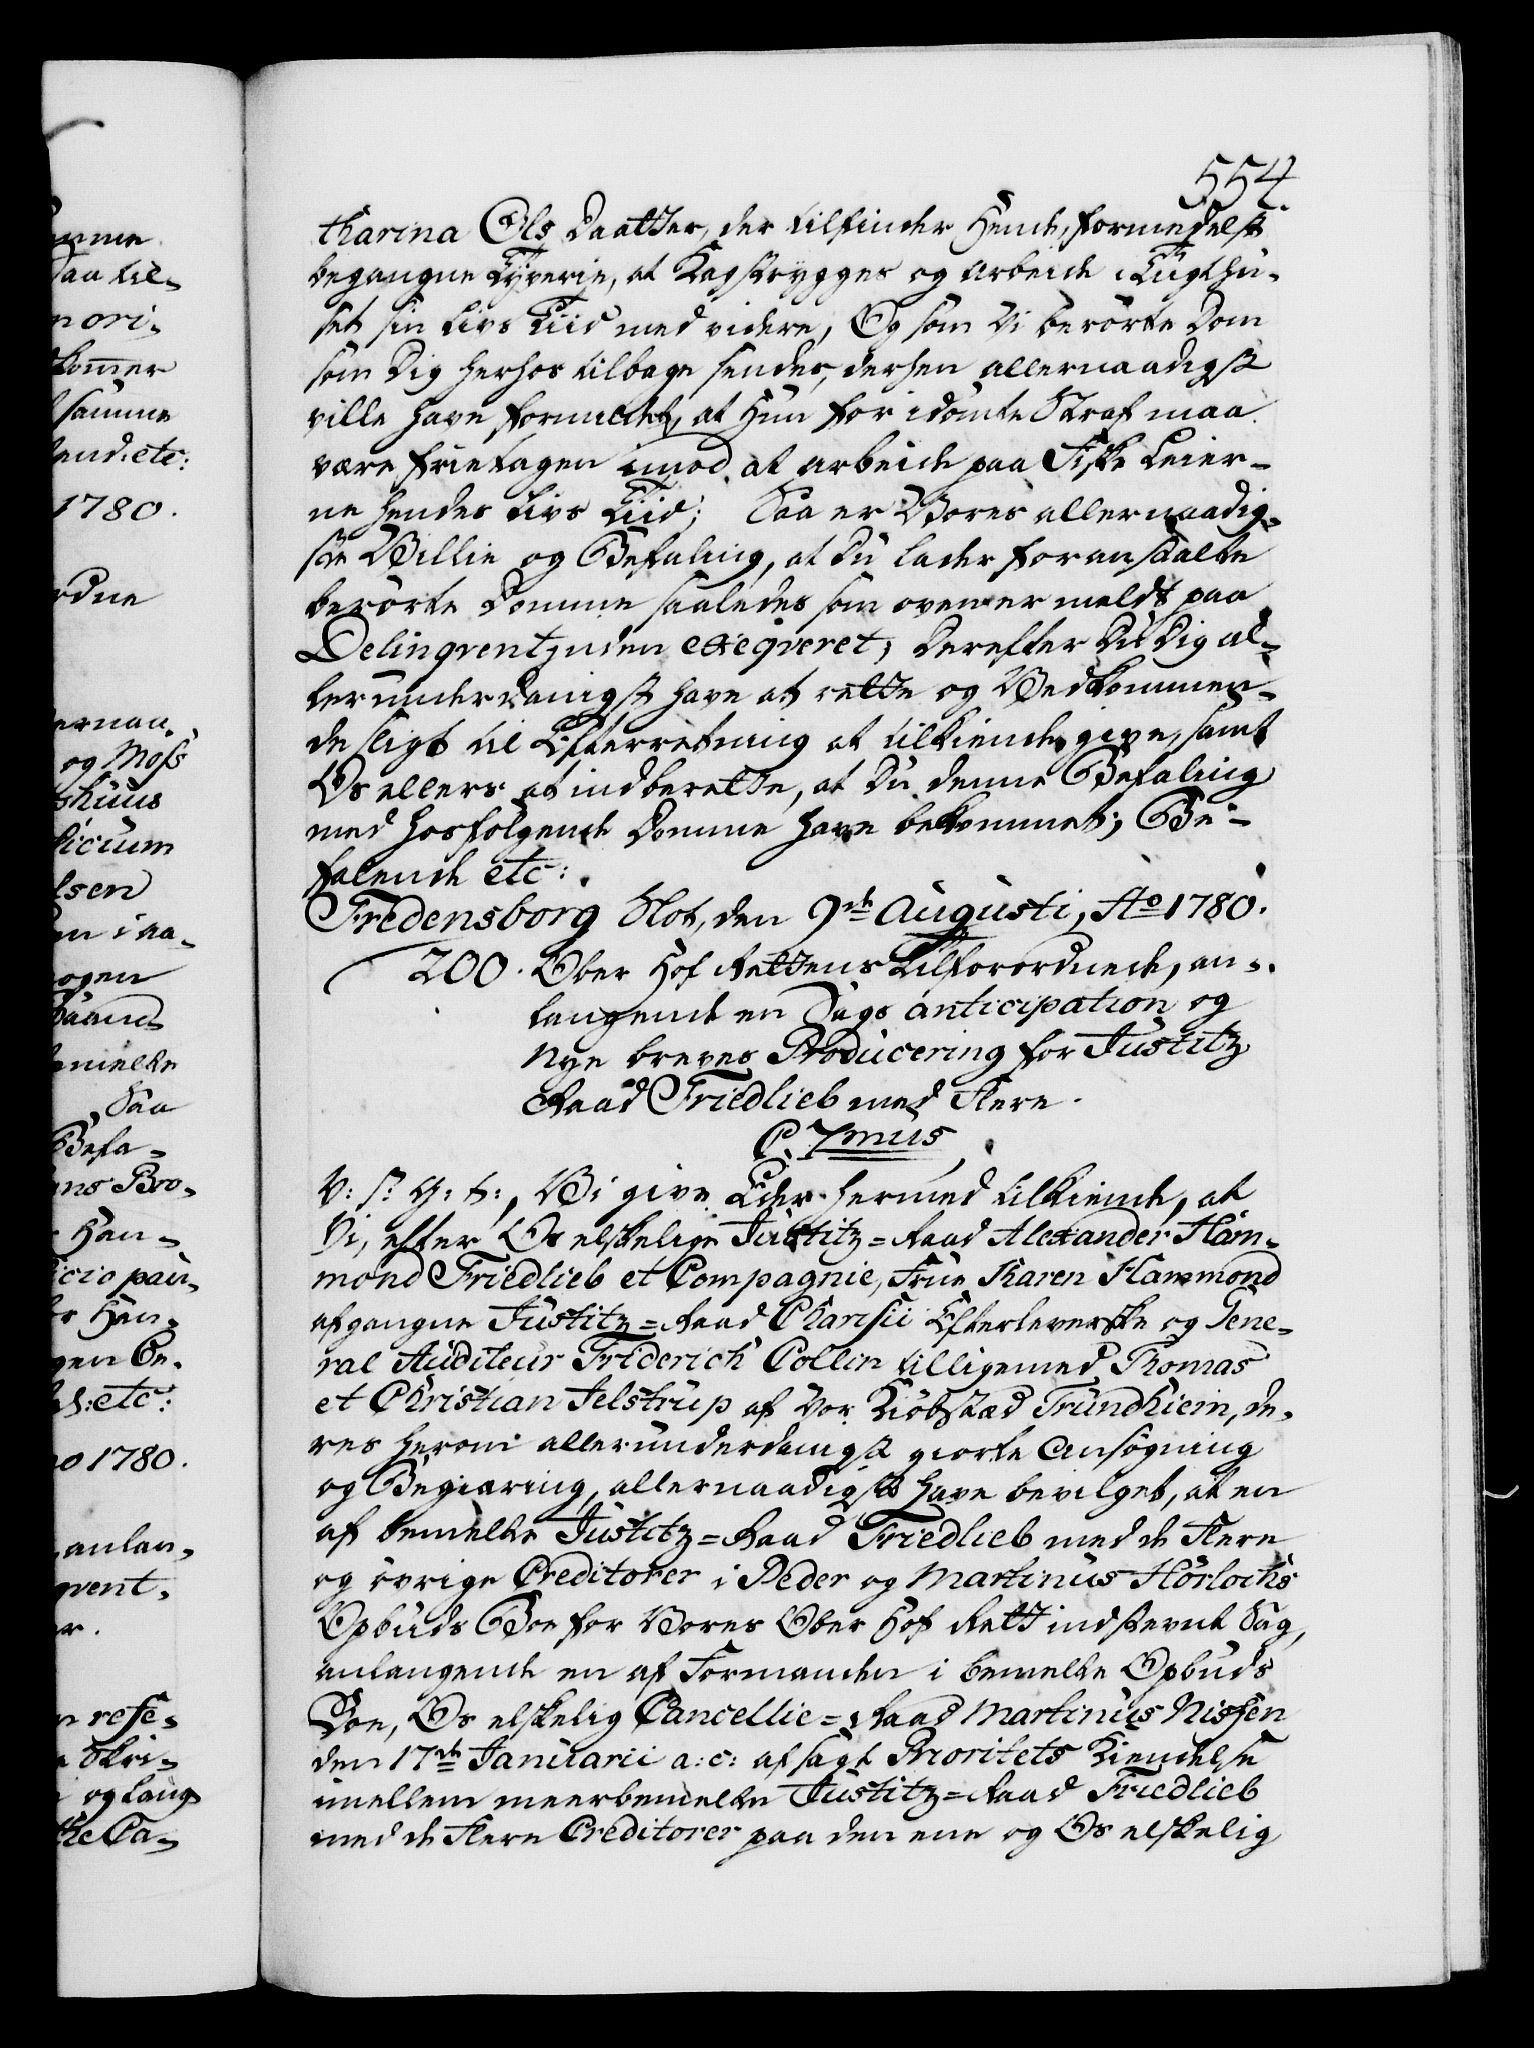 554.
tharina Ols Daatter, der tilfinder Hende, formedelst
begangne Tyverie, at Kagstryges og arbeide i Tugthu-
set sin Livs Tiid med videre, Og som Vi berörte Dom
som Dig herhos tilbage sendes, derhen allernaadigst
ville have formildet, at Hun for idömte Straf maa
være frietagen imod at arbeide paa Fiske Leier-
ne hendes Livs Tiid; Saa er Vores allernaadig-
ste Villie og Befaling, at Du lader foranstalte
berörte Domme saaledes som oven er meldt paa
Delinqventinden exeqveret; Derefter Du Dig al-
lerunderdanigst have at rette og Vedkommen-
de sligt til Efterretning at tilkiende give, samt
Os ellers at indberette, at Du denne Befaling
med hosfølgende Domme have bekommet; Be-
falende etc:
Fredensborg Slot, den 9de Augusti, Ao 1780.
200. Ober Hof Rettens Tilforordnede, an-
langende en Sags anticipation og
Nye breves Producering for Justitz
Raad Friedlieb med Flere.
C. 7mus
V: S: G: T:, Vi give Eder hermed tilkiende, at
Vi, efter Os elskelige Justitz=Raad Alexander Ham-
mond Friedlieb et Compagnie, Frue Karen Hammond
afgangne Justitz=Raad Charisii Efterleverske og Gene-
ral Auditeur Friderich Collin tilligemed Thomas
et Christian Jelstrup af Vor Kiöbstæd Trundhiem, de-
res herom allerunderdanigst giorte Ansögning
og Begiæring, allernaadigst have bevilget, at en
af bemelte Justitz=Raad Friedlieb med de Flere
og övrige Creditorer i Peder og Martinus Hörlochs
Opbuds Boe for Vores Ober Hof Rett indstevnt Sag,
anlangende en af Formanden i bemelte Opbuds
Boe, Os elskelig Cancellie=Raad Martinus Nissen
den 17de Januarii a: c: afsagt Prioritets Kiendelse
imellem meerbemelte Justitz=Raad Friedlieb
med de Flere Creditorer paa den ene og Os elskelig